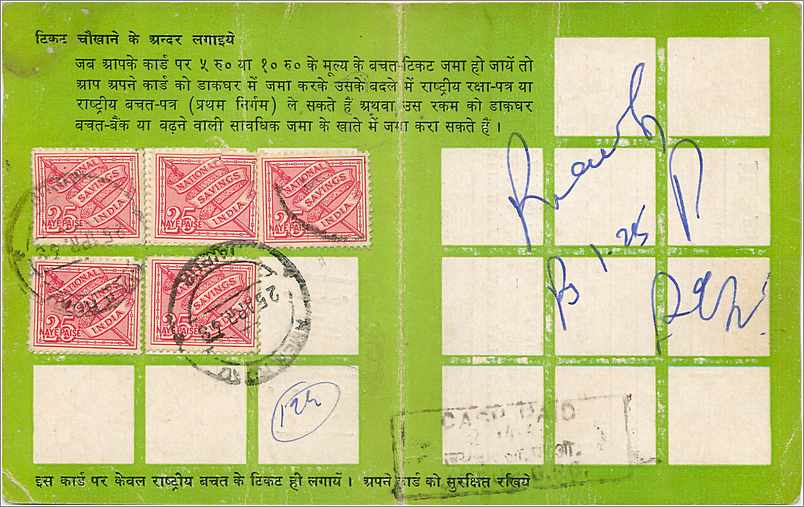 टिकट चौखाने के अन्दर लगाइये
जब आपके कार्ड पर ५ रु० या १० रु० के मूल्य के बचत-टिकट जमा हो जायें तो
आप अपने कार्ड को डाकघर में जमा करके उसके बदले में राष्ट्रीय रक्षा-पत्र या
राष्ट्रीय बचत-पत्र (प्रथम निर्गम) ले सकते हैं अथवा उस रकम को डाकघर
बचत-बैंक या बढ़ने वाली सावधिक जमा के खाते में जमा करा सकते हैं ।
NATIONAL SAVINGS INDIA
25 NAYE PAISE
NATIONAL SAVINGS INDIA
25 NAYE PAISE
NATIONAL SAVINGS INDIA
25 NAYE PAISE
NATIONAL SAVINGS INDIA
25 NAYE PAISE
SAVINGS INDIA
25 NAYE PAISE
25 APR 63
1.25
CASH PAID
इस कार्ड पर केवल राष्ट्रीय बचत के टिकट ही लगायें । अपने कार्ड को सुरक्षित रखिये